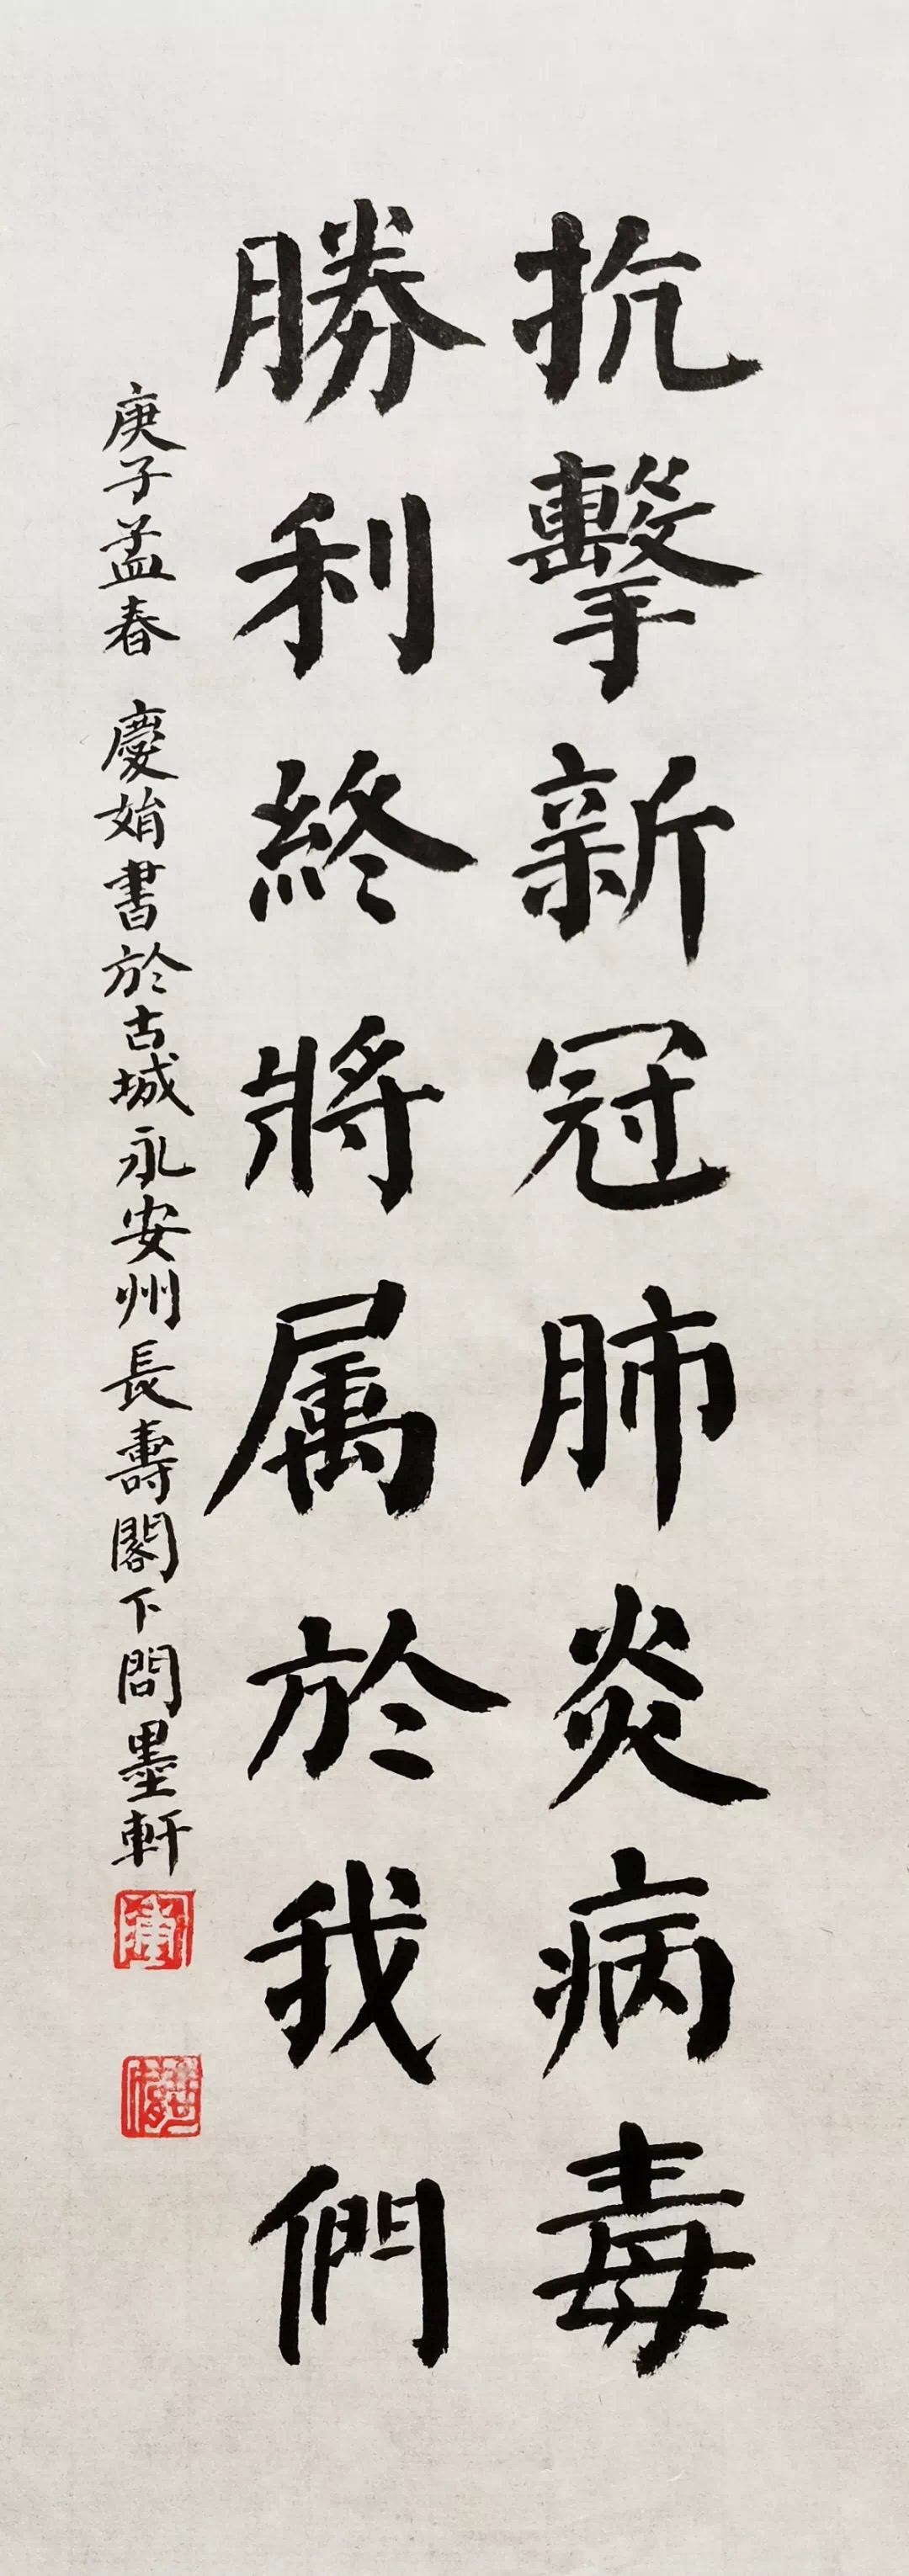 抗擊新冠肺炎病毒
勝利終將属於我們
庚子孟春 慶娟書於古城永安州長壽閣下問墨軒